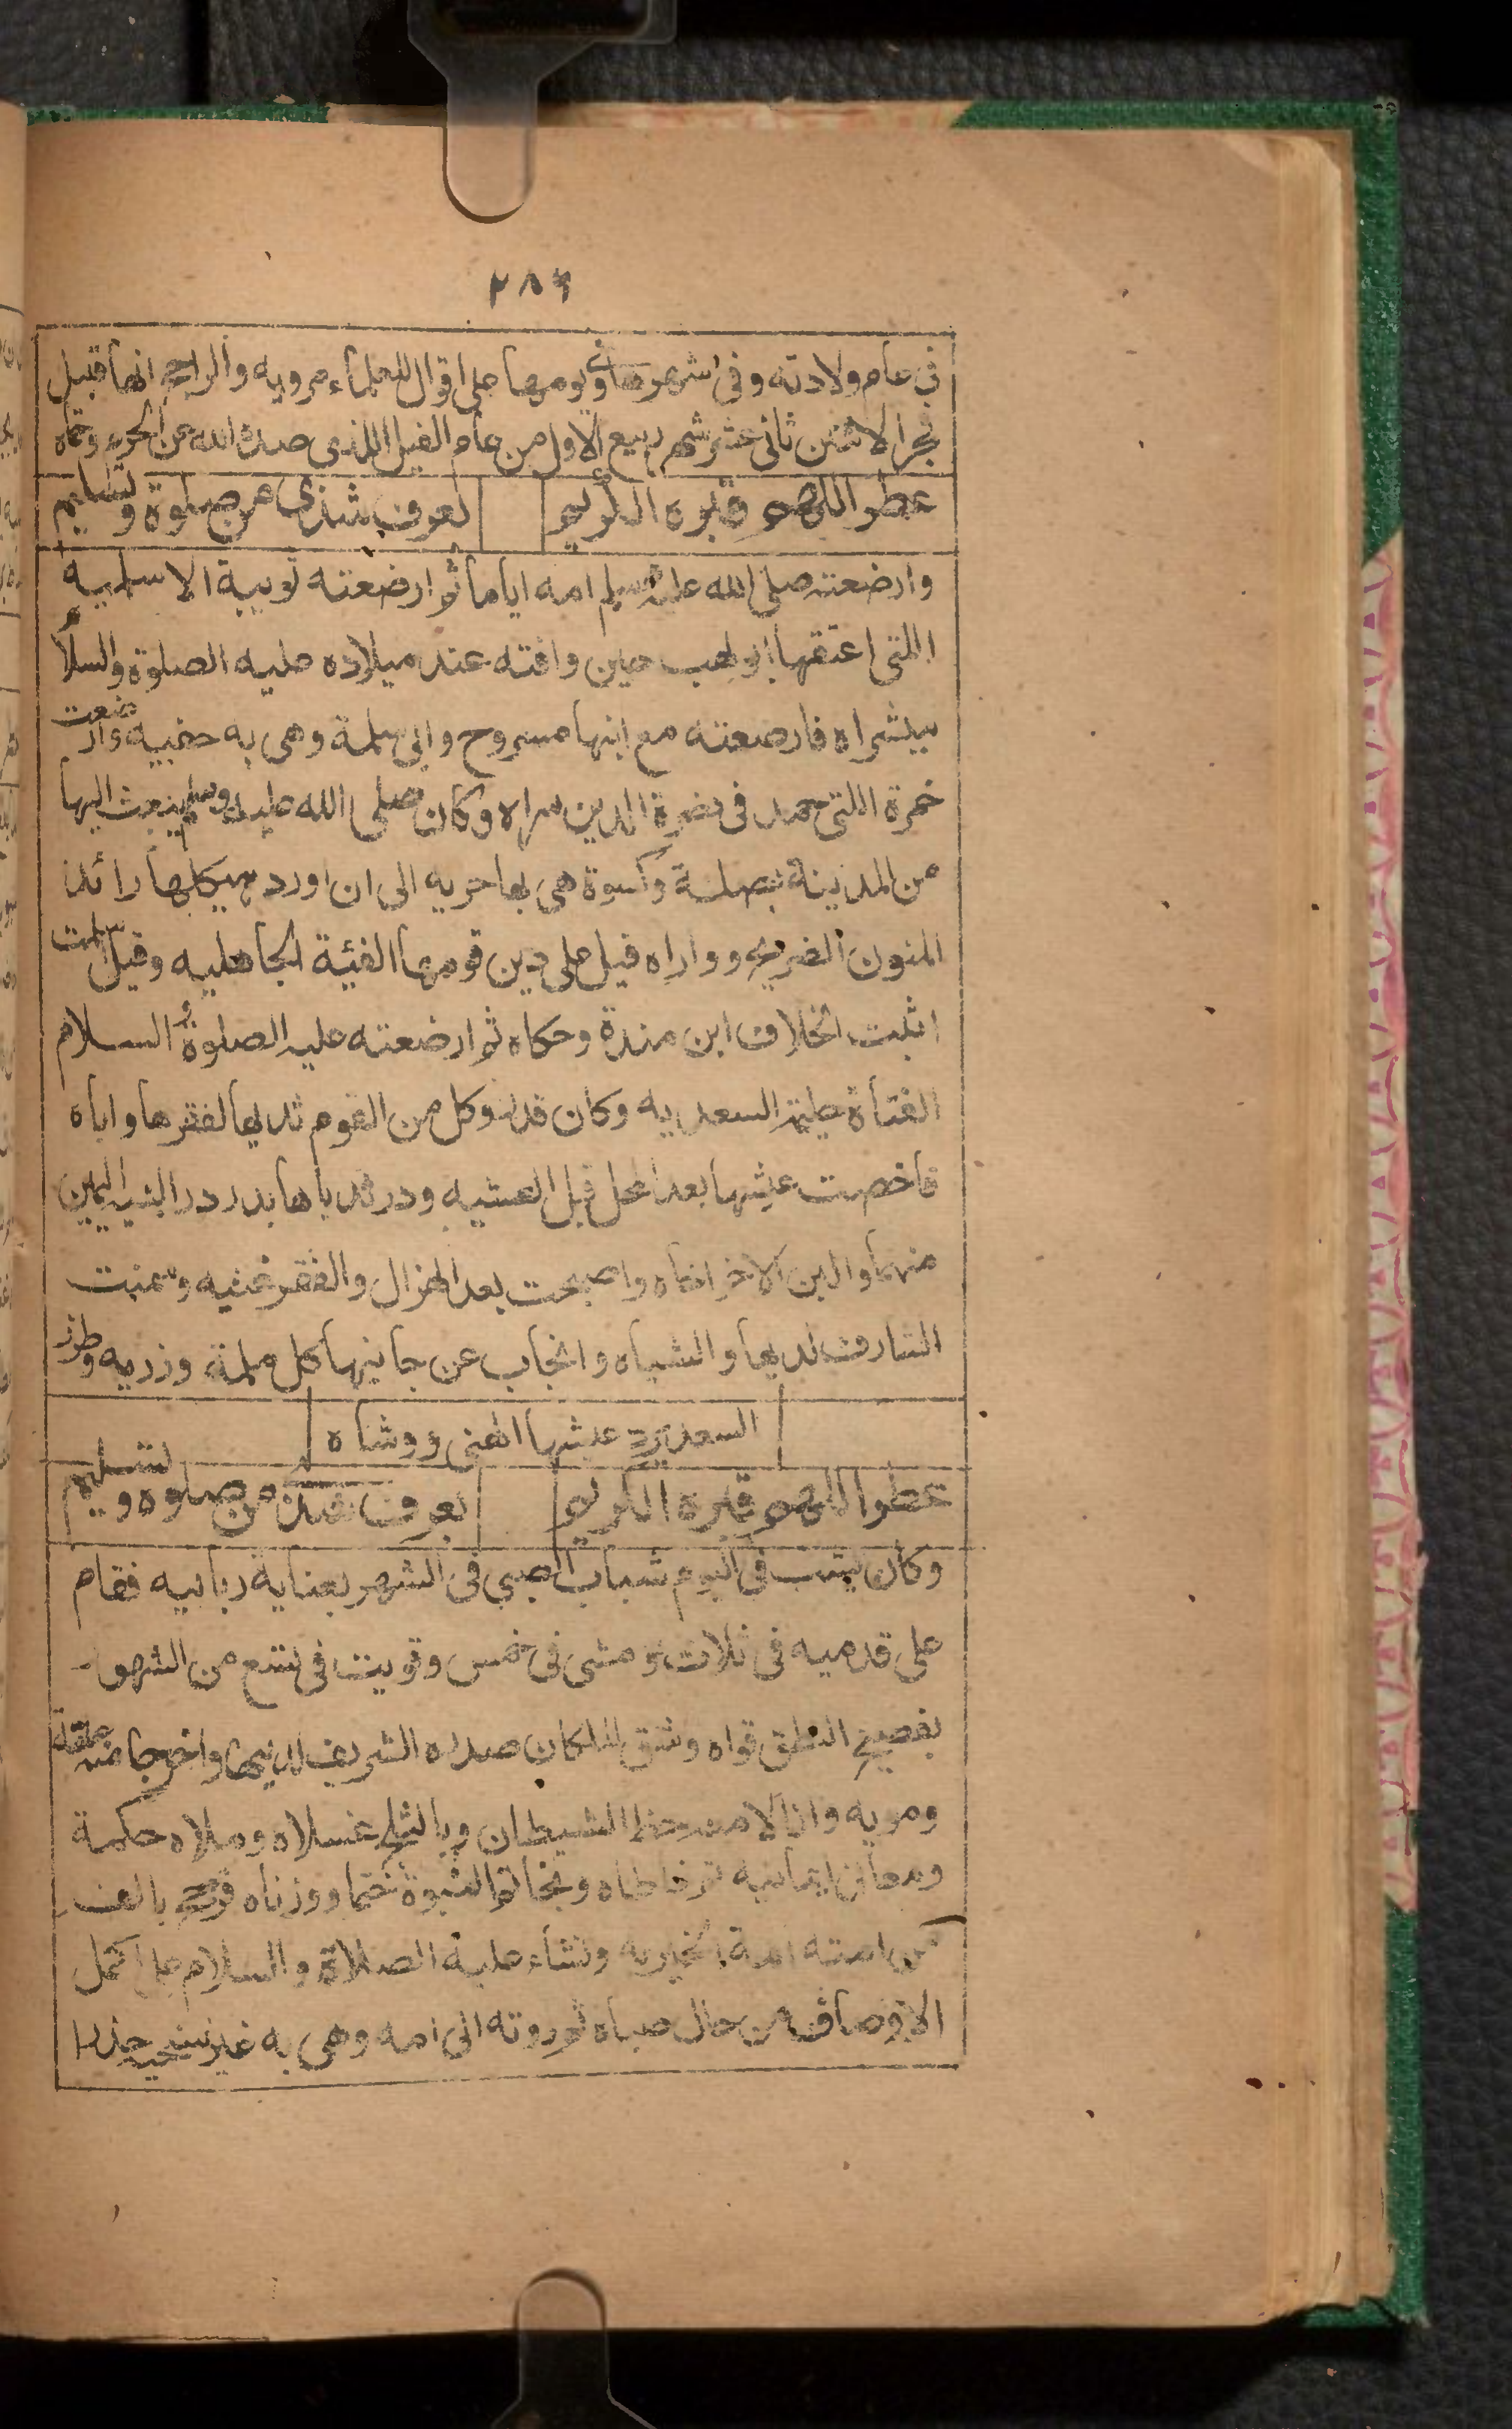 ٢٨٦
في عام ولادته وفي شهرها وفي يومها على اقوال للعلماء مرويه والراجح انها قبيل
فجر الاثنين ثاني عشر شهر ربيع الاول من عام الفيل اللذى صده الله عن الحرم وحماه
عطر اللهم قبره الكريم بعرف شذى من صلوة وتسليم
وارضعته صلى الله عليه وسلم امه اياما ثم ارضعته ثويبة الاسلميه
اللتى اعتقها ابو لهب حين وافته عند ميلاده عليه الصلوة والسلام
ببشراه فارضعته مع ابنها مسروح وابى سلمة وهى به حفيه وارضعت
حمزة اللتى حمد فى نصرة الدين سراه وكان صلى الله عليه وسلم يبعث اليها
من المدينة بصلة وكسوة هى بها حريه الى ان اورد هيكلها رائد
المنون الضريح وواراه قيل على دين قومها الفئية الجاهليه وقيل اسلمت
اثبت الخلاف ابن مندة وحكاه ثم ارضعته عليه الصلوة والسلام
الفتاة حليمة السعديه وكان قد رد كل من القوم ثديها لفقرها واباه
فاخصب عيشها بعد المحل قبل العشيه ودر ثدياها بدر در البنه اليمين
منهما والبن الاخر اخاه واصبحت بعد الهزال والفقر غنيه وسمنت
الشارف لديها والشياه وانجاب عن جانبها كل ملمة ورزيه وطرز
السعد برد عيشها الهنى ووشاه
عطر اللهم قبره الكريم بعرف شذى من صلوة وتسليم
وكان يشب فى اليوم شباب الصبي فى الشهر بعناية ربانيه فقام
على قدميه فى ثلاث ومشى فى خمس وقويت فى تسع من الشهور
بفصيح النطق قواه وشق الملكان صدره الشريف لديها واخرجا منه علقة
دمويه وازالا منه حظ الشيطان وبالثلج غسلاه وملاه حكمة
ومعانى ايمانيه ثم خاطاه وبخاتم النبوة ختماه ووزناه فرجح بالف
من امته امة الخيريه ونشاء عليه الصلاة والسلام على اكمل
الاوصاف من حال صباه ثم ردته الى امه وهى به غير سخيه حذرا